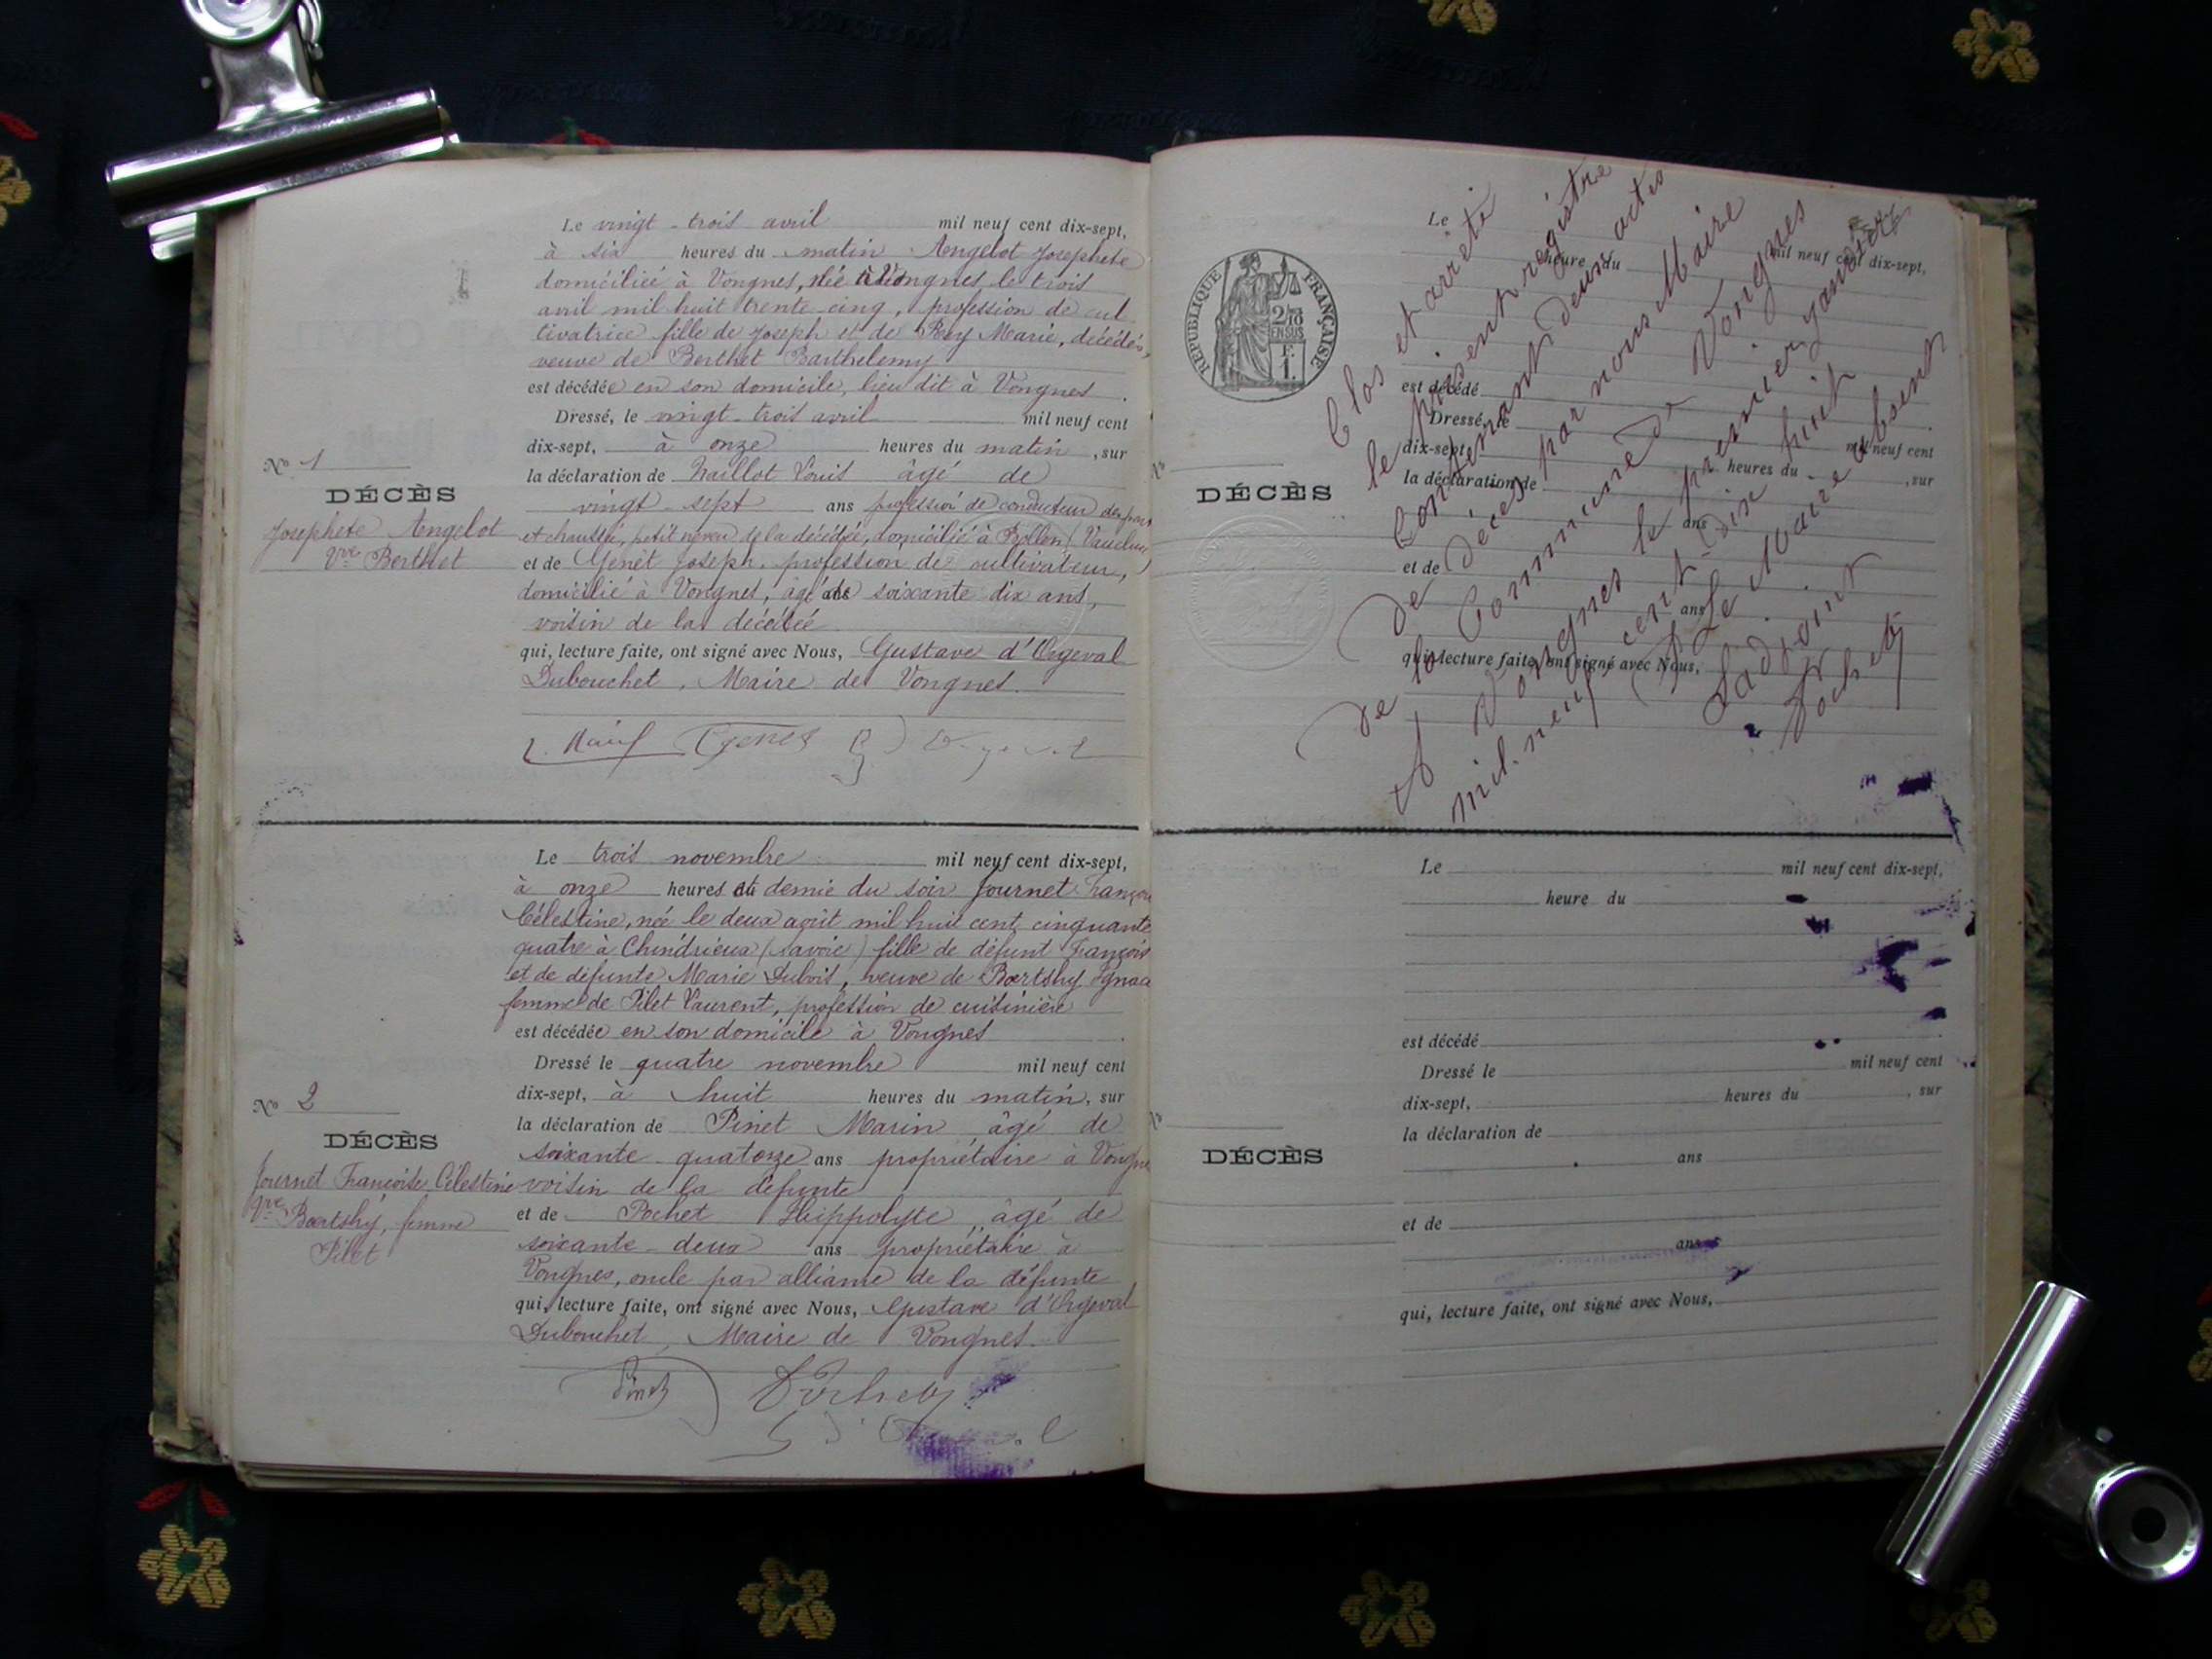 Le vingt-trois avril mil neuf cent dix-sept,
à six heures du matin Angelot Josephete
domiciliée à Vongnes, née à Vongnes, le trois
avril mil huit trente-cinq, profession de cul
tivatrice fille de Joseph et de Rey Marie, décédés,
veuve de Berthet Barthelemy
est décédée en son domicile, lieu dit à Vongnes.
Dressé, le vingt-trois avril mil neuf cent
dix-sept, à onze heures du matin, sur
la déclaration de Louis âgé de
vingt-sept ans profession de conducteur des ponts
et chaussée, petit neveu de la décédée, domicilié à (Vaucluse)
et de Genet Joseph, profession de cultivateur,
domicilié à Vongnes, âgé de soixante dix ans,
voisin de la décédée
qui, lecture faite, ont signé avec Nous, Gustave d'Orgeval
Dubouchet, Maire de Vongnes.
No 1
DÉCÈS
Josephete Angelot
Vve Berthet
Le trois novembre mil neuf cent dix-sept,
à onze heures et demie du soir Journet Françoise
Célestine, née le deux août mil huit cent cinquante
quatre à Chindrieux (Savoie) fille de défunt François
et de défunte Marie Dubois, veuve de Bærtshy Ignace
femme de Pilet Laurent, profession de cuisinière
est décédée en son domicile à Vongnes.
Dressé le quatre novembre mil neuf cent
dix-sept, à huit heures du matin, sur
la déclaration de Pinet Marin âgé de
soixante-quatorze ans propriétaire à Vongnes
voisin de la défunte
et de Pochet Hippolyte, âgé de
soixante-deux ans propriétaire à
Vongnes, oncle par alliance de la défunte
qui, lecture faite, ont signé avec Nous, Gustave d'Orgeval
Dubouchet, Maire de Vongnes.
No 2
DÉCÈS
Journet Françoise Célestine
Vve Bærtshy, femme
Pilet
Pinet
Pochet
RÉPUBLIQUE FRANÇAISE
Clos et arrêté
le présent registre
Contenant deux actes
de décès par nous Maire
de la Commune de Vongnes
A Vongnes le premier janvier
mil neuf cent dix huit
P. Le Maire absent
L'adjoint
Pochet
Le mil neuf cent dix-sept,
heure du
est décédé
Dressé, le mil neuf cent
dix-sept, heures du , sur
la déclaration de
ans
et de
ans
qui, lecture faite, ont signé avec Nous,
DÉCÈS
Le mil neuf cent dix-sept,
heure du
est décédé
Dressé le mil neuf cent
dix-sept, heures du , sur
la déclaration de
ans
et de
ans
qui, lecture faite, ont signé avec Nous,
DÉCÈS